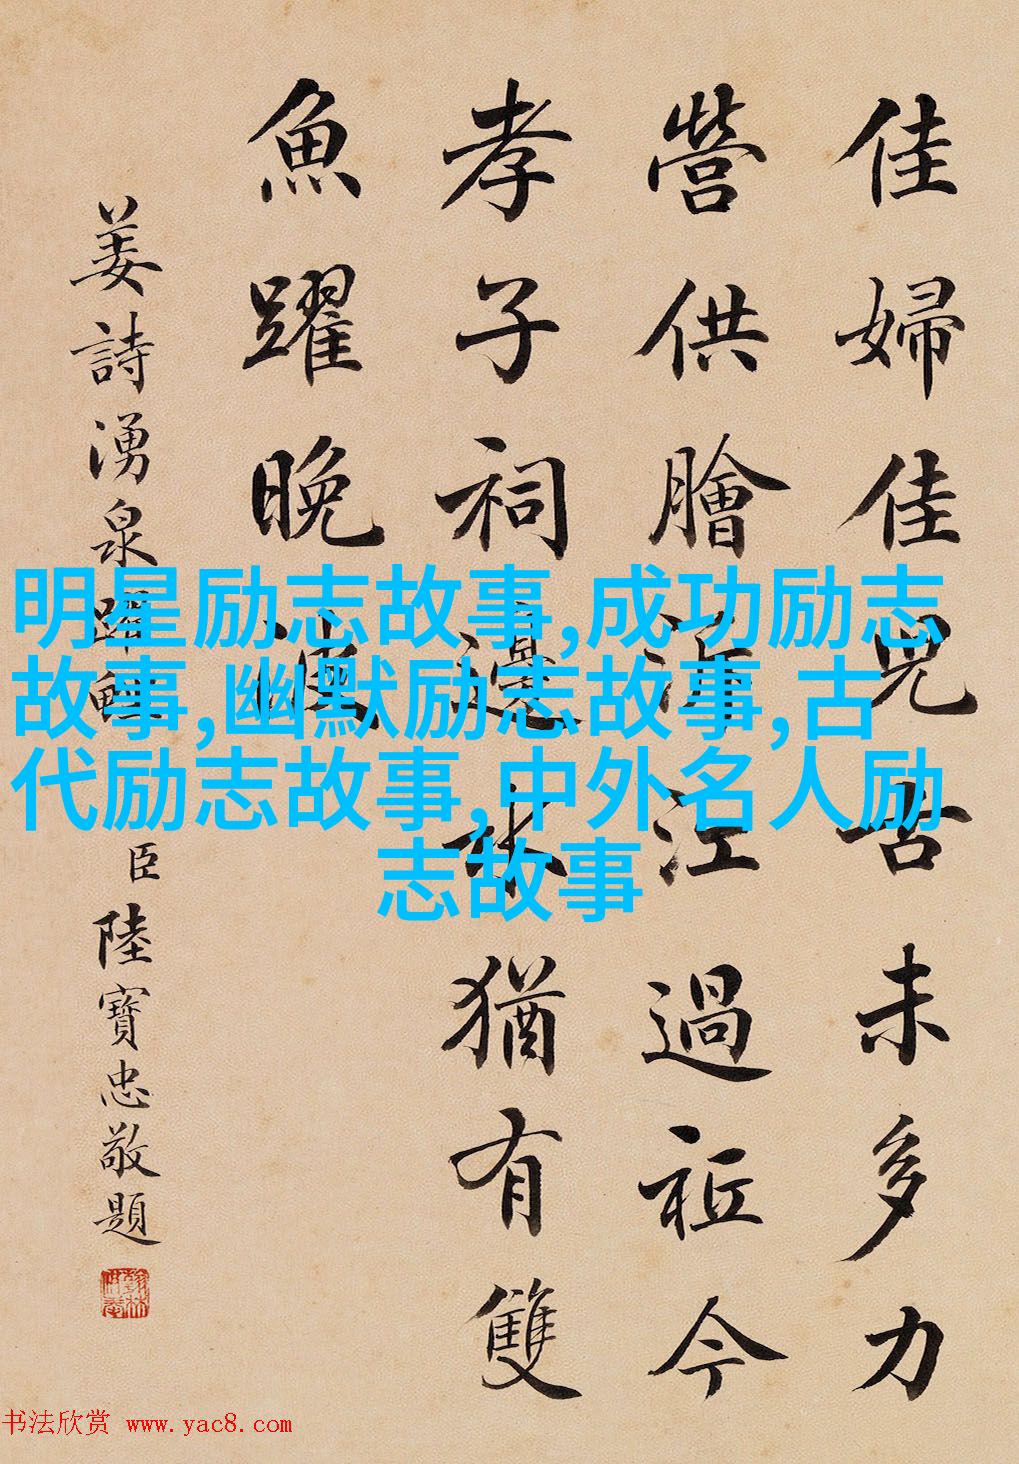 佳婦佳兒古未多力
營供膾泝江過祗今
孝子祠邊水猶有雙
魚躍晚波
姜詩湧泉躍鯉
臣陸寶忠敬題
明星励志故事,成功励志
故事,幽默励志故事,古
代励志故事,中外名人励
志故事
书法欣赏 www.yac8.com